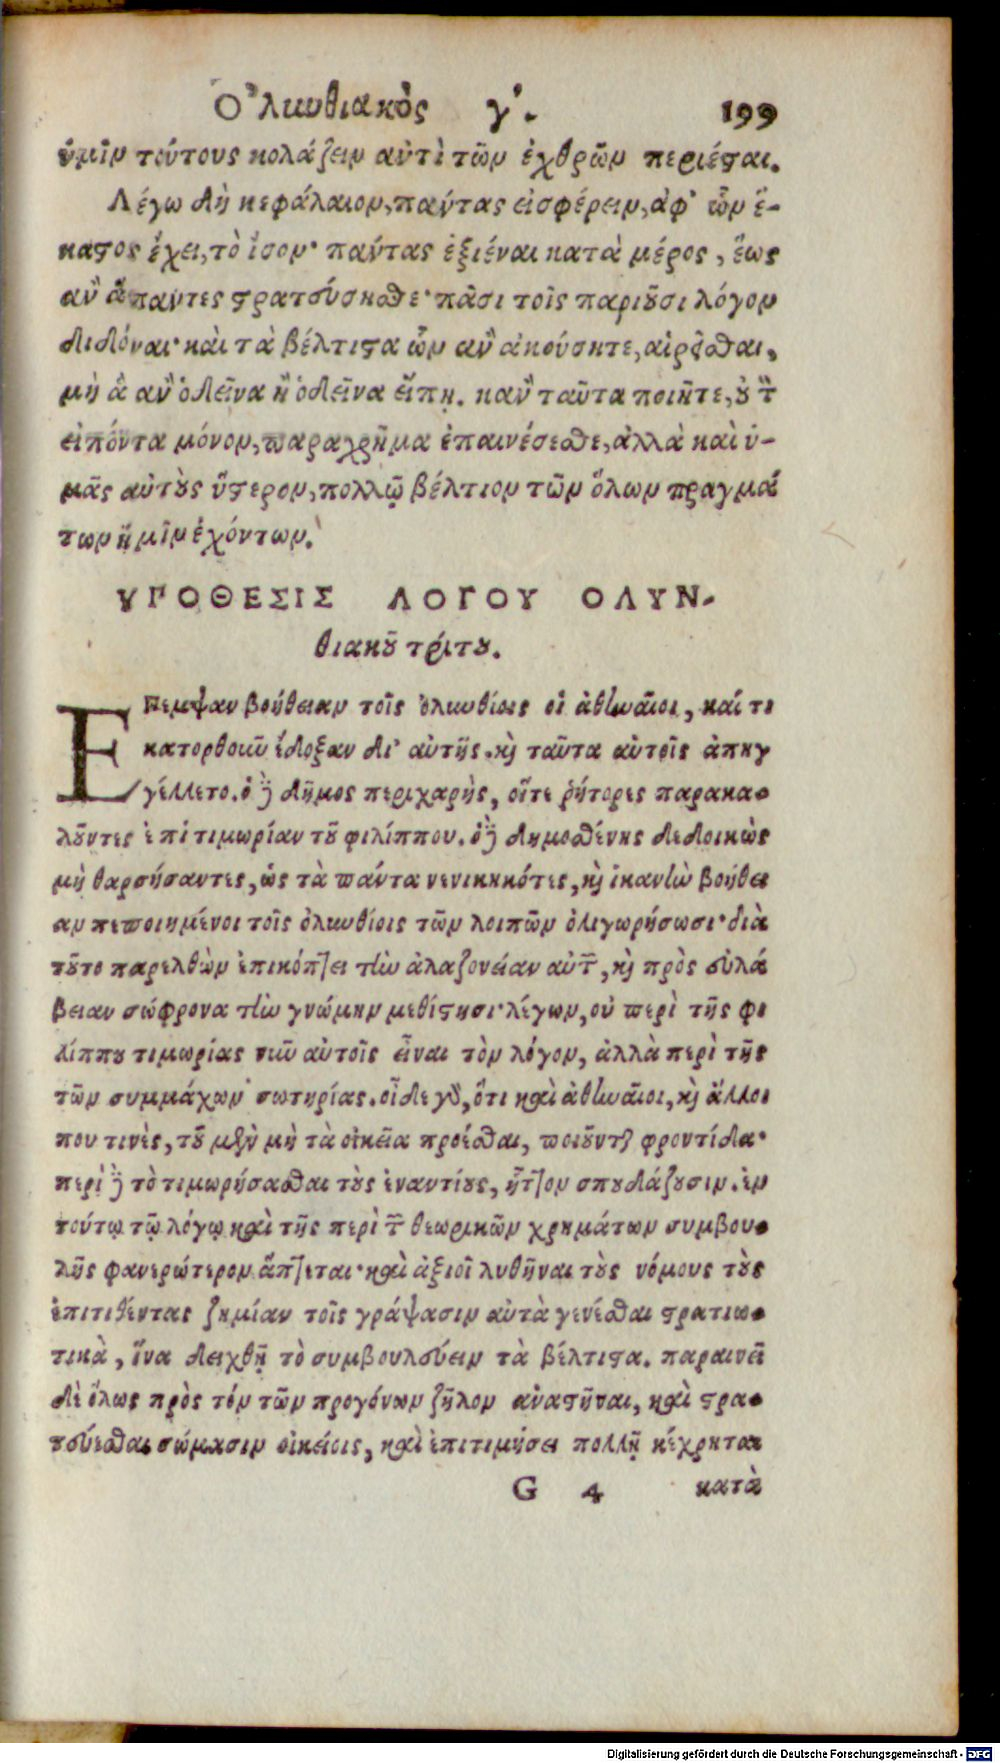 Ὀλυνθιακὸς γ'. 199
ὑμῖν τούτους κολάζειν ἀντὶ τῶν ἐχθρῶν περιέσται.
Λέγω δὴ κεφάλαιον, πάντας εἰσφέρειν, ἀφ' ὧν ἕ-
καστος ἔχει, τὸ ἴσον· πάντας ἐξιέναι κατὰ μέρος, ἕως
ἂν ἅπαντες στρατεύσησθε· πᾶσι τοῖς παριοῦσι λόγον
διδόναι· καὶ τὰ βέλτιστα ὧν ἂν ἀκούσητε, αἱρεῖσθαι,
μὴ ἃ ἂν ὁ δεῖνα ἢ ὁ δεῖνα εἴπῃ. κἂν ταῦτα ποιῆτε, οὐ τὸν
εἰπόντα μόνον, παραχρῆμα ἐπαινέσεσθε, ἀλλὰ καὶ ὑ-
μᾶς αὐτοὺς ὕστερον, πολλῷ βέλτιον τῶν ὅλων πραγμά
των ἡμῖν ἐχόντων.
ΥΠΟΘΕΣΙΣ ΛΟΓΟΥ ΟΛΥΝ-
θιακοῦ τρίτου.
ΕΠεμψαν βοήθειαν τοῖς ὀλυνθίοις οἱ ἀθηναῖοι, καί τι
κατορθοῦν ἔδοξαν δι' αὐτῆς. καὶ ταῦτα αὐτοῖς ἀπηγ
γέλλετο. ὁ δὲ δῆμος περιχαρὴς, οἵτε ῥήτορες παρακα-
λοῦντες ἐπὶ τιμωρίαν τοῦ φιλίππου. ὁ δὲ δημοσθένης δεδοικὼς
μὴ θαρσήσαντες, ὡς τὰ πάντα νενικηκότες, καὶ ἱκανὴν βοήθει
αν πεποιημένοι τοῖς ὀλυνθίοις τῶν λοιπῶν ὀλιγωρήσωσι· διὰ
τοῦτο παρελθὼν ἐπικόπτει τὴν ἀλαζονείαν αὐτῶν, καὶ πρὸς εὐλά
βειαν σώφρονα τὴν γνώμην μεθίστησι· λέγων, οὐ περὶ τῆς φι
λίππου τιμωρίας νῦν αὐτοῖς εἶναι τὸν λόγον, ἀλλὰ περὶ τῆς
τῶν συμμάχων σωτηρίας. οἶδε γὰρ, ὅτι καὶ ἀθηναῖοι, καὶ ἄλλοι
που τινὲς, τοῦ μὲν μὴ τὰ οἰκεῖα προέσθαι, ποιοῦνται φροντίδα·
περὶ δὲ τὸ τιμωρήσασθαι τοὺς ἐναντίους, ἧττον σπουδάζουσιν. ἐν
τούτῳ τῷ λόγῳ καὶ τῆς περὶ τῶν θεωρικῶν χρημάτων συμβου-
λῆς φανερώτερον ἅπτεται· καὶ ἀξιοῖ λυθῆναι τοὺς νόμους τοὺς
ἐπιτιθέντας ζημίαν τοῖς γράψασιν αὐτὰ γενέσθαι στρατιω-
τικὰ, ἵνα δειχθῇ τὸ συμβουλεύειν τὰ βέλτιστα. παραινεῖ
δὲ ὅλως πρὸς τὸν τῶν προγόνων ζῆλον ἀναστῆναι, καὶ στρα-
τεύεσθαι σώμασιν οἰκείοις, καὶ ἐπιτιμήσει πολλῇ κέχρηται
G 4 κατὰ
Digitalisierung gefördert durch die Deutsche Forschungsgemeinschaft - DFG